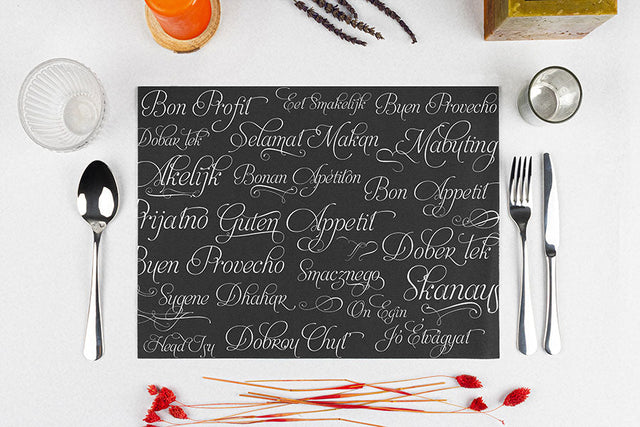 Bon Profit Eet Smakelijk Buen Provecho
Dobar tek Selamat Makan Mabuting
Akelijk Bonan Apetiton Bon Appetit
rijatno Guten Appetit Dober tek
Buen Provecho Smacznego Skanaus
Sygene Dhahar On Egin
Dobrou Chut Jó Étvágyat